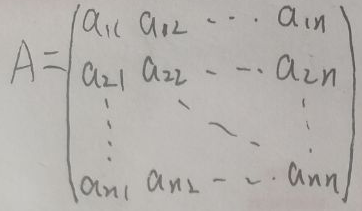 A = ( a₁₁ a₁₂ ⋯ a₁ₙ
a₂₁ a₂₂ ⋯ a₂ₙ
⋮ ⋱ ⋮
aₙ₁ aₙ₂ ⋯ aₙₙ )